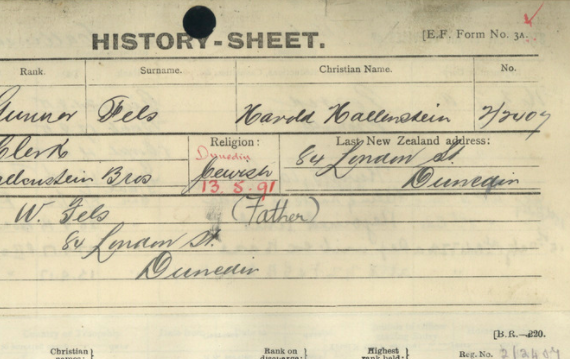 HISTORY-SHEET. [E.F. Form No. 3A.
Rank. Surname. Christian Name. No.
Gunner Fels Harold Hallenstein 2/2407
Clerk Religion: Last New Zealand address:
Dunedin
Hallenstein Bros Jewish 84 London St.
13.5.91 Dunedin
W. Fels (Father)
84 London St.
Dunedin
[B.R.—220.
Christian Rank on Highest
discharge: rank held: Reg. No. 2/2407